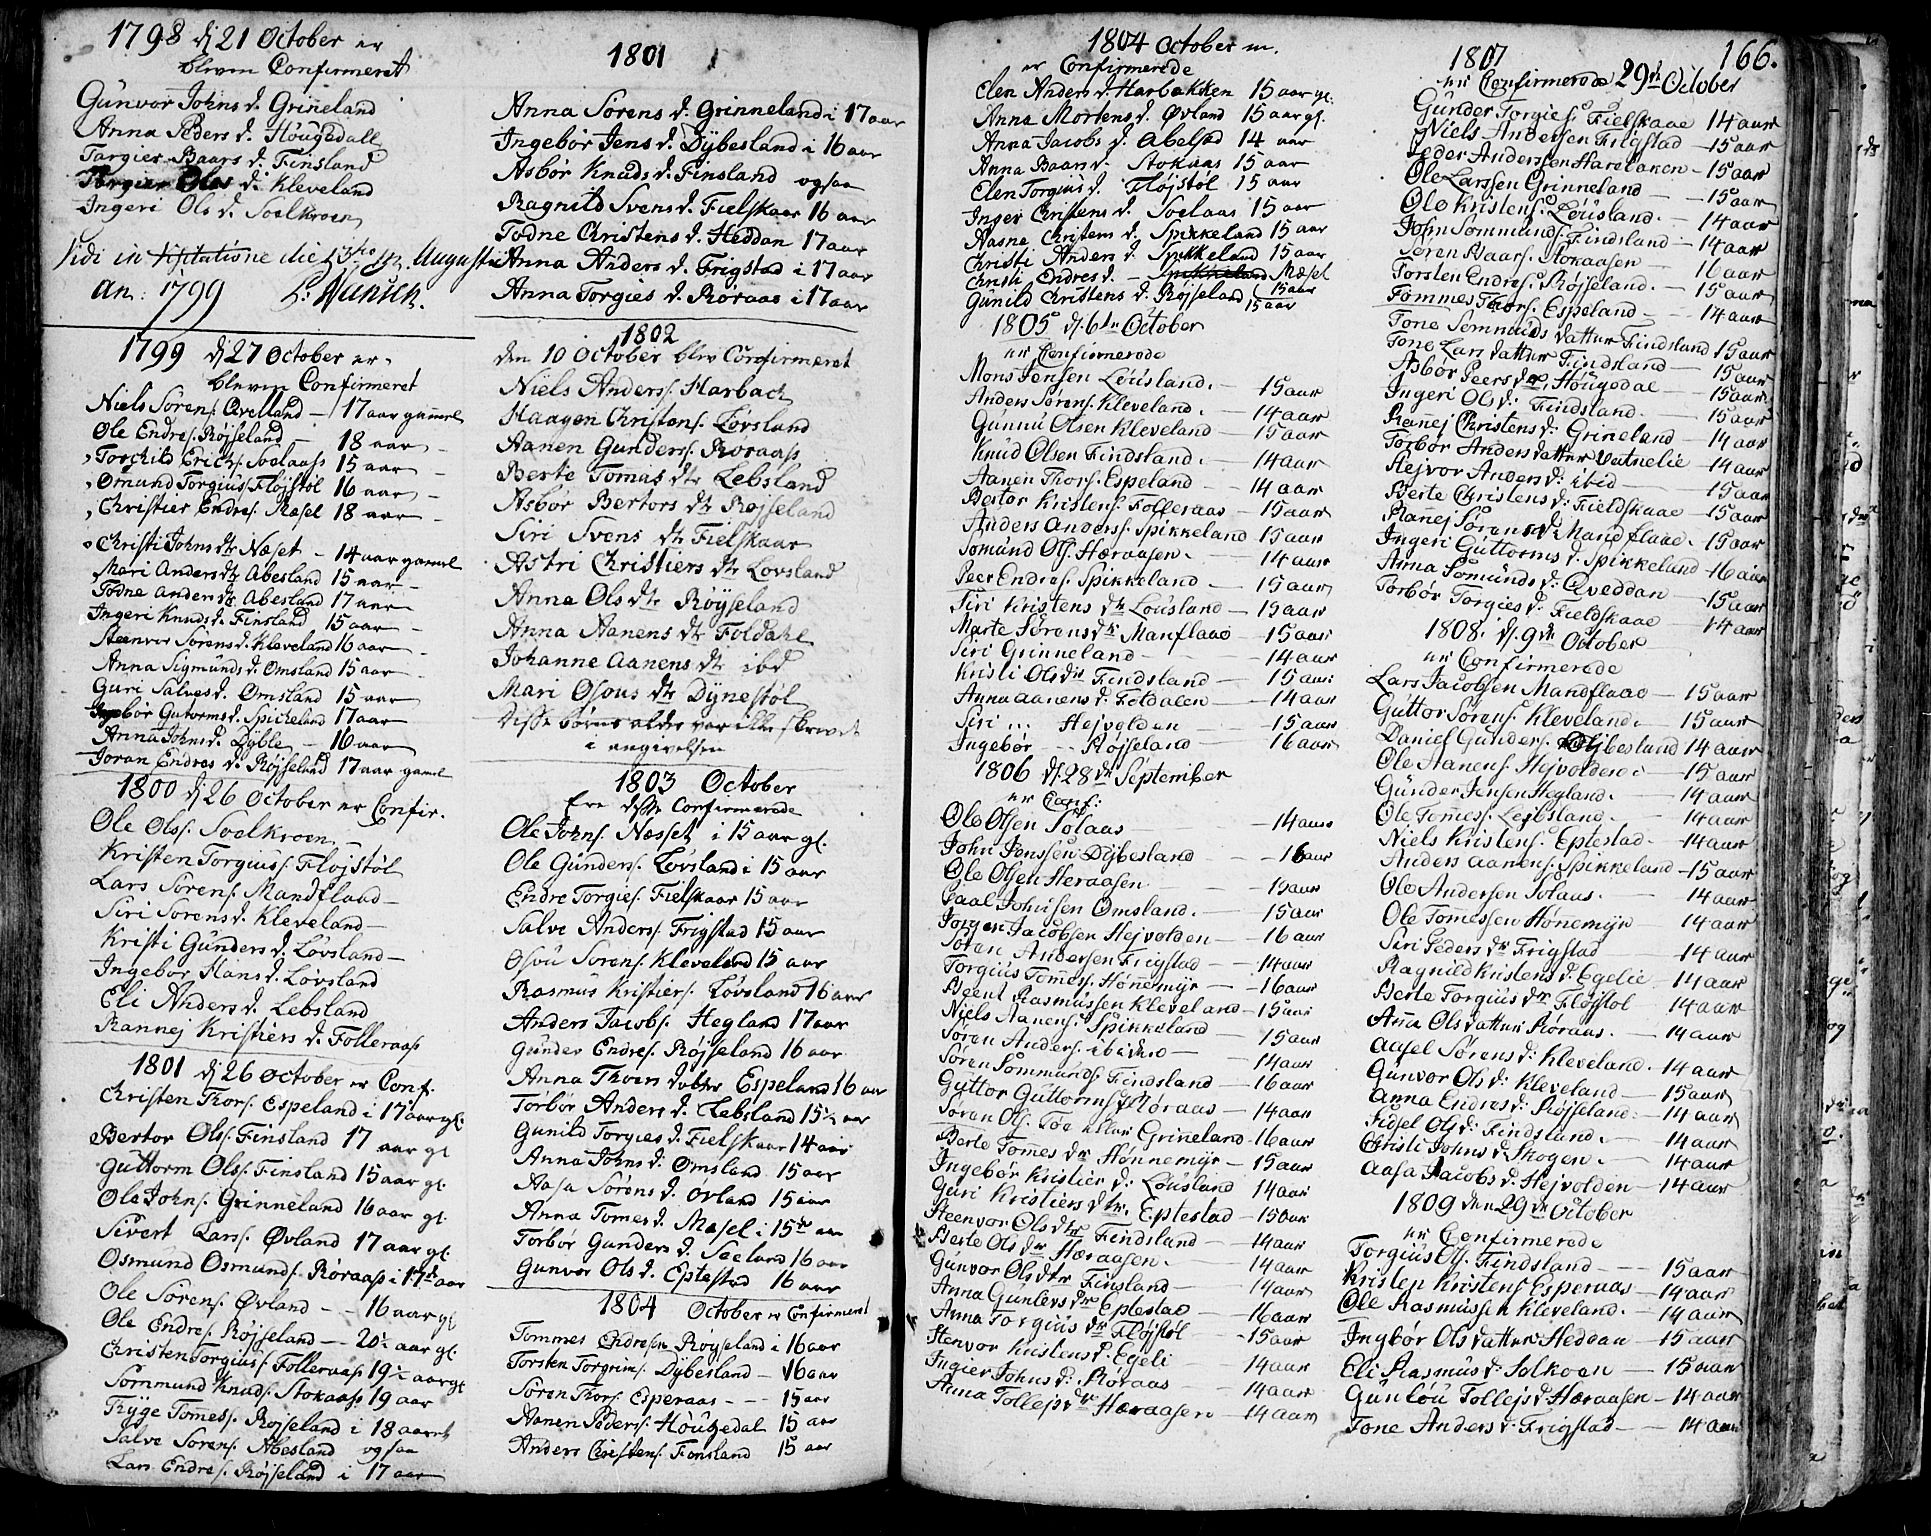 1798 dj 21 October er
bleven Confirmeret
Gunvor Johns d. Grineland
Anna Peders d. Hougedall
Targier Baars d. Finsland
Olas d. Kleveland
Ingeri Ols d. Soelkroen
Vidi in Visitatione die Augusti
an: 1799 P. Hansen.
1799 dj 27 October er
bleven Confirmeret
Niels Sörens. Qvelland — 17 aar gamel
Ole Endres. Röjseland — 18 aar
Torckild Erichs. Soelaass 15 aar
Omund Torgius. Flöjstöl 16 aar
Christier Endres. Masel 18 aar
Christi Johns dtr Næset — 14 aar gamel
Mari Anders dtr Abesland 15 aar
Todne Anders dtr Abesland 17 aar
Ingeri Knuds d. Finsland 15 aar
Steenver Sörens d. Kleveland 16 aar
Anna Sigmunds d. Omsland 15 aar
Guri Salves d. Omsland 15 aar
Ingebör Gutorms d. Spickeland 17 aar
Anna Johns d. Dyble — 16 aar
Joran Endres d. Röjseland 17 aar gamel
1800 dj 26 October er Confir.
Ole Olss. Soelkroen
Kristen Torgiuss. Flöjstöl
Lars Sörens. Mandfland
Siri Sörens d. Kleveland
Kristi Gunders d. Lövsland
Ingebor Hans d. Lövsland
Eli Anders d. Lebsland
Rannej Kristiers d. Folleraass
1801 dj 26 October er Conf.
Christen Thors. Espeland i 17 aar gl.
Bertor Ols. Finsland 17 aar gl
Guttorm Ols. Finsland 15 aar gl.
Ole Johns. Grinneland 16 aar gl.
Sivert Larss. Øvland 17 aar gl.
Osmund Osmunds. Röraass i 17de aar
Ole Sörens. Øvland — 16 aar gl
Ole Endres. Röjseland — 20½ aar gl.
Christen Torgiuss. Folleraass 19½ aar gl
Sömmund Knuds. Stokaass 19 aar
Tryge Tommess. Röjseland i 18 aaret
Salve Sörens. Abesland ogsaa
Lars Endres. Röjseland i 17 aar
1801
Anna Sörens d. Grinneland i 17 aar
Ingebör Jens d. Dybesland i 16 aar
Asbör Knuds d. Finsland ogsaa
Ragnild Svens d. Fielskaar 16 aar
Todne Christens d. Heddan 17 aar
Anna Anders d. Frigstad i 17 aar
Anna Torgies d. Röraas i 17 aar
1802
den 10 October blev Confirmeret
Niels Anderss. Harbach
Haagen Christens. Lövsland
Aanen Gunderss. Röraass
Berte Tomas dtr Lebsland
Asbör Bertors dtr Röjseland
Siri Svens dtr Fielskaar
Astri Christiers dtr Lovsland
Anna Ols dtr Röyseland
Anna Aanens dtr Foldahl
Johanne Aanens dtr ibd
Mari Osous dtr Dynestöl
Disse børns alder var ikke skrevet
i angivelsen
1803 October
Ere disse Confirmerede
Ole Johns. Næsset i 15 aar gl.
Ole Gunders. Lövsland i 15 aar
Endre Torgies. Fielskaar 15 aar
Salve Anderss. Frigstad 15 aar
Osvu Sörens. Kleveland 15 aar
Rasmus Kristiers. Lövsland 16 aar
Anders Jacobs. Hegland 17 aar
Gunder Endres. Röjseland 16 aar
Anna Thoers datter Espeland 16 aar
Torbör Anders d. Lebsland 15½ aar
Gunild Torgies d. Fielskaar 14 aar
Anna Johns d. Omsland 15 aar
Aasa Sörens d. Øvland 15 aar
Anna Tomes d. Masel i 15de aar
Torbör Gunders d. Seeland 16 aar
Gunvor Ols d. Eptestad 16 aar
1804 October er Confirmeret
Tommes Endresen Royseland i 16 aar
Torsten Torgrims. Dybesland — 16 aar
Sören Thors. Esperaas — 15 aar
Aanen Pederss. Hougedal 15 aar
Anders Christens. Finsland 15 aar
1804 October m.
er Confirmerede
Elen Anders d. Harbakken 15 aar gl.
Anna Mortens d. Øvland 15 aar gl.
Anna Jacobs d. Abelsed 14 aar
Anna Baars d. Stokaas 15 aar
Elen Torgius d. Flöjstöl 15 aar
Inger Christens d. Soelaas 15 aar
Aasne Christens d. Spikkeland 15 aar
Christi Anders d. Spikkeland 15 aar
Christi Endres d. — Spikkeland Mæsel 15 aar
Gunild Christens d. Röjseland 15 aar
1805 d. 6te October
er Confirmerede
Mons Jensen Lousland. — 15 aar
Anders Sörens. Kleveland. — 14 aar
Gunnu Olsen Kleveland — 15 aar
Knud Olsen Findsland. — 14 aar
Aanen Thors. Espeland — 14 aar
Bertor Kristens. Folleraas — 15 aar
Anders Anders. Spikkeland 15 aar
Sömund Ols. Hæraasen. — 14 aar
Peer Endres. Spikkeland — 15 aar
Siri Kristens dtr Lousland — 15 aar
Marte Sörens dtr Manflaae — 15 aar
Siri Grinneland — 14 aar
Kristi Ols dtr Findsland — 15 aar
Anna Aanens d. Foldalen — 14 aar
Siri Hejvolden — 15 aar
Ingebör — Röjseland — 16 aar
1806 d. 28de September
er Conf:
Ole Olsen Solaas — 14 aar
John Jenssen Dybesland — 16 aar
Ole Olsen Heraasen — 15 aar
Paal Johnsen Omsland. — 15 aar
Jorgen Jacobsen Hejvolden — 16 aar
Sören Andersen Frigstad — 14 aar
Torgius Tommes. Hönnemyr — 16 aar
Beent Rasmussen Kleveland — 15 aar
Niels Aanens. Spikkeland — 15 aar
Sören Anders. ibidem — 14 aar
Sören Sommunds. Findsland — 16 aar
Guttor Guttorms. Röraas — 14 aar
Sören Ols. Töe eller Grinneland — 16 aar
Berte Tommes dtr Hönnemyr — 15 aar
Ingebör Kristier d. Lousland 14 aar
Guri Kristiers dtr. Eptestad — 15 aar
Steenvor Ols dtr Findsland — 14 aar
Berte Ols dtr Hæraasen. — 14 aar
Gunvor Ols dtr Finsland — 14 aar
Anna Gunders dtr Eptestad — 16 aar
Anna Torgius dtr Flöjstöl — 15 aar
Stenvor Kristens d. Egeli 14 aar
Ingier Johns d. Röraas — 14 aar
Anna Tollejs dtr Hæraasen — 14 aar
1807 166.
er Confirmerede 29de October
Gunder Torgies. Fielskaae 14 aar
Niels Andersen Frigstad — 15 aar
Peder Anderssen Harelaken — 15 aar
Ole Larssen Grinneland — 15 aar
Ole Kristens. Lousland. — 14 aar
John Sommunds. Findsland — 14 aar
Sören Baars. Stokaasen 16 aar
Torsten Endres. Röjseland. — 15 aar
Tommes Thors. Espeland — 14 aar
Tone Semmunds dattur Findsland 15 aar
Tone Lars dattur Findsland — 15 aar
Asbör Peers dtr. Hougedal — 15 aar
Ingeri Ols d. Findsland. — 15 aar
Rannej Christens d. Grineland — 14 aar
Torbör Anders dattur Vatnelie — 14 aar
Hejvor Anders d. ibid — 15 aar
Berte Christens d. Fieldskaae — 15 aar
Rannej Sörens d. Mandflaae. 15 aar
Ingeri Guttorms d. Spikkeland — 16 aar
Anna Somunds d. Qveddan — 15 aar
Torbör Torgies d. Fieldskaae — 14 aar
1808. d. 9de October
er Confirmerede
Lars Jacobsen Mandflaae — 15 aar
Guttor Sörens. Kleveland. — 15 aar
Daniel Gunders. Dybesland 14 aar
Ole Aanens. Hejvolden — 15 aar
Gunder Jensen Hegland. — 14 aar
Ole Tommes. Lejbsland. — 14 aar
Niels Kristens. Eptestad. — 14 aar
Anders Aanens. Spikkeland — 15 aar
Ole Andersen Solaas. 14 aar
Ole Tomessen Hönemyr — 14 aar
Siri Peders dtr Frigstad — 14 aar
Ragnild Kristens d. Egelie — 14 aar
Berte Torgius dtr Flöjstöl 14 aar
Anna Ols dattur Röraas. — 14 aar
Aasel Sörens d. Kleveland. 14 aar
Gunvor Ols d. Kleveland — 15 aar
Anna Endres d. Röjseland. — 14 aar
Sidsel Ols d. Findsland. — 14 aar
Christi Johns d. Skogen. — 14 aar
Aasa Jacobs d. Hejvolden — 14 aar
1809 den 29de October
er Confirmerede
Torgius Ols. Findsland — 15 aar
Kristen Kristens. Esperaas — 14 aar
Ole Rasmussen Kleveland. — 14 aar
Ingbör Ols dattur Heddan — 15 aar
Eli Rasmus d. Solkoen — 15 aar
Gunlou Tollejs d. Hæraasen — 14 aar
Tone Anders d. Frigstad — 14 aar